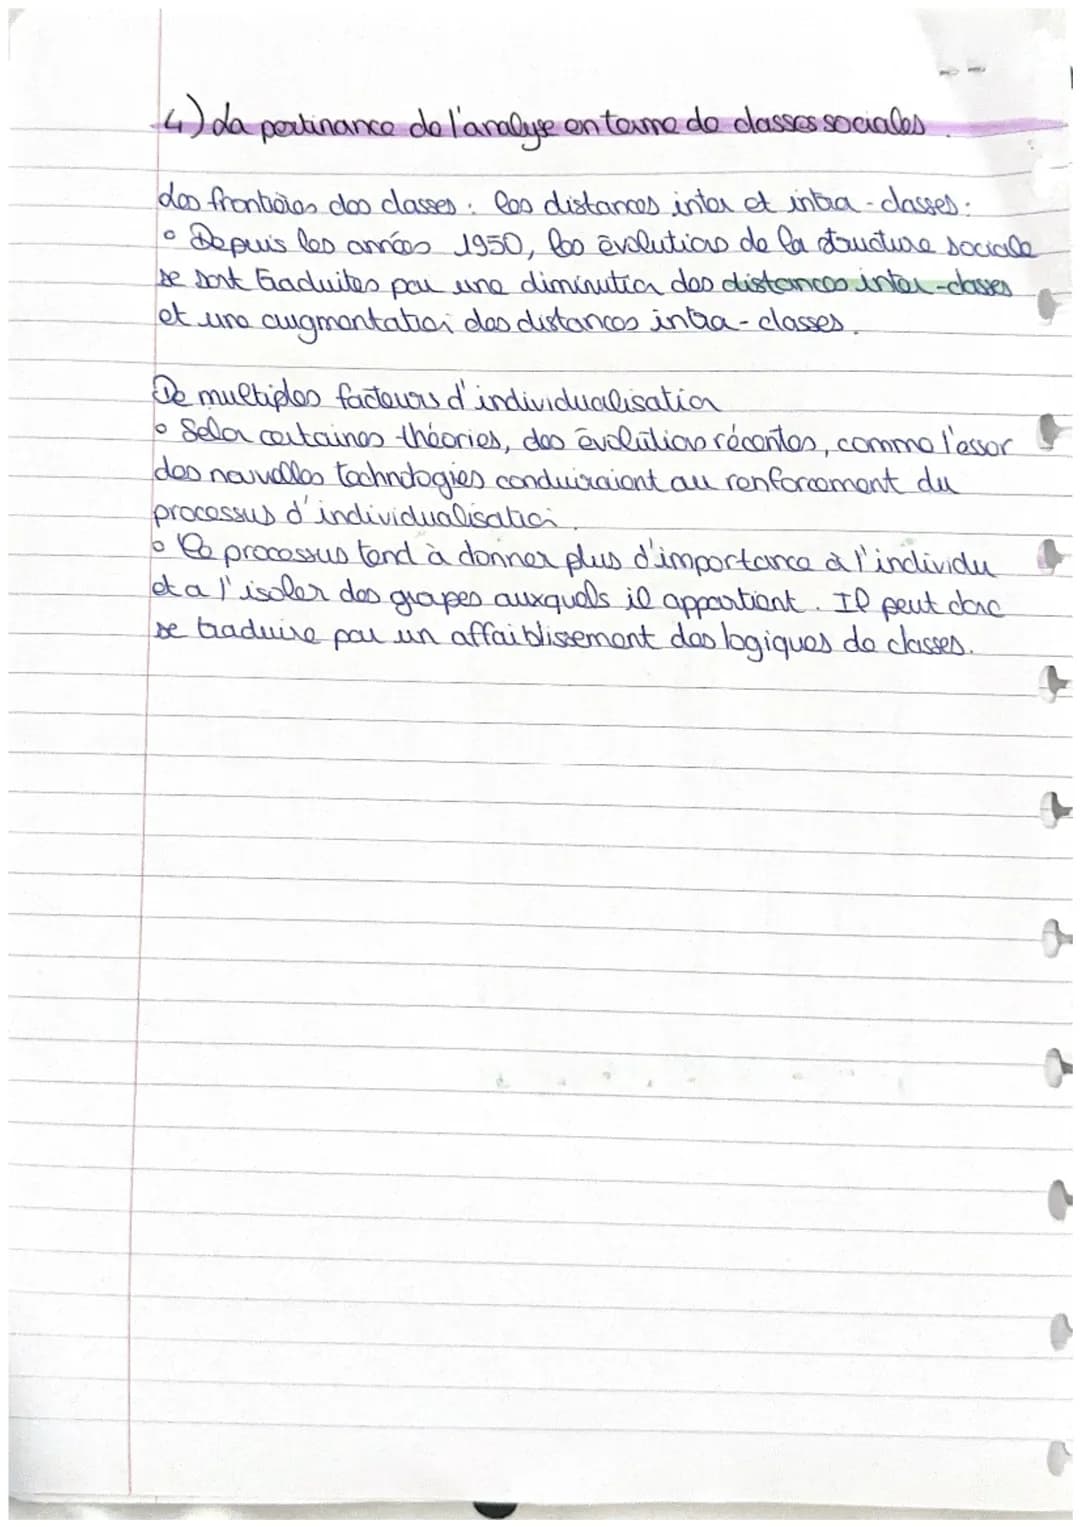 4) La pertinance de l'analyse en terme de classes sociales.
Les frontières des classes : les distances inter et intra-classes :
◦ Depuis les années 1950, les évolutions de la structure sociale
se sont traduites par une diminution des distances inter-classes
et une augmentation des distances intra-classes.
De multiples facteurs d'individualisation
◦ Selon certaines théories, des évolutions récentes, comme l'essor
des nouvelles technologies conduiraient au renforcement du
processus d'individualisation.
◦ Ce processus tend à donner plus d'importance à l'individu
et a l'isoler des groupes auxquels il appartient. Il peut donc
se traduire par un affaiblissement des logiques de classes.